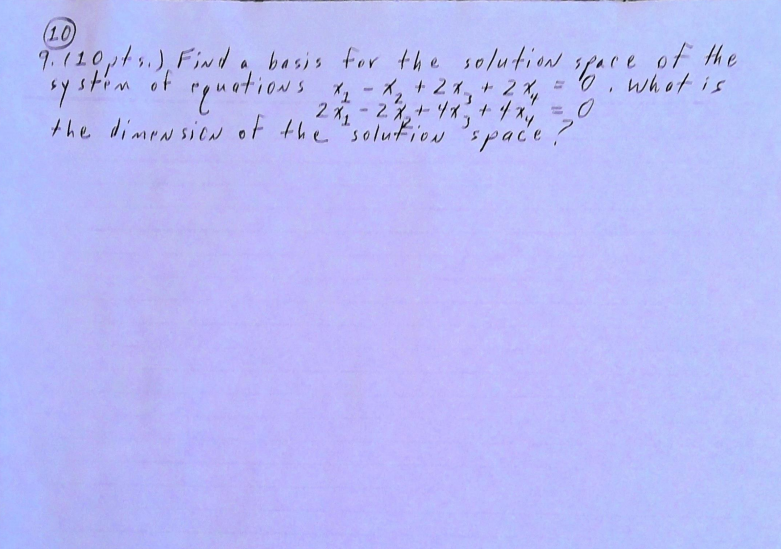 10
9. (10 pts.) Find a basis for the solution space of the
system of equations x₁ - x₂ + 2x₃ + 2x₄ = 0. What is
2x₁ - 2x₂ + 4x₃ + 4x₄ = 0
the dimension of the solution space?